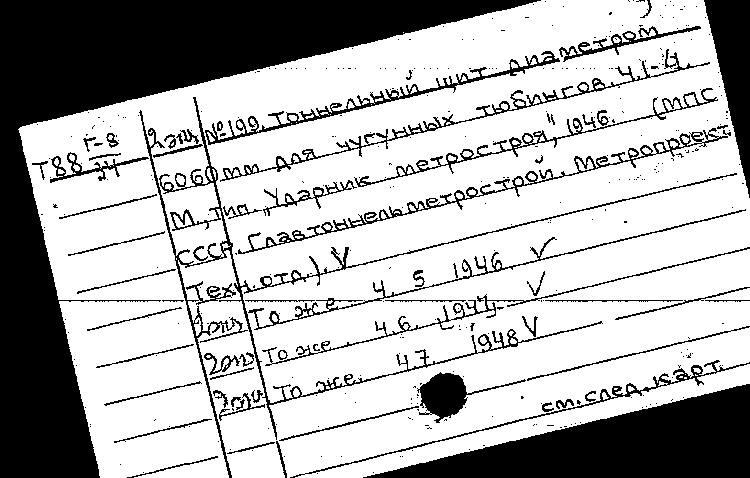 Т88 Г-8/24 2 экз №199. Тоннельный щит диаметром
6060 мм для чугунных тюбингов. Ч.1-4.
М., тип. „Ударник метростроя", 1946. (МПС
СССР. Главтоннельметрострой. Метропроект
Техн. отд.). V
2экз То же. Ч. 5 1946. ✓
2экз То же. Ч.6. 1947. ✓
2экз То же. Ч.7. 1948 V
см. след. карт.